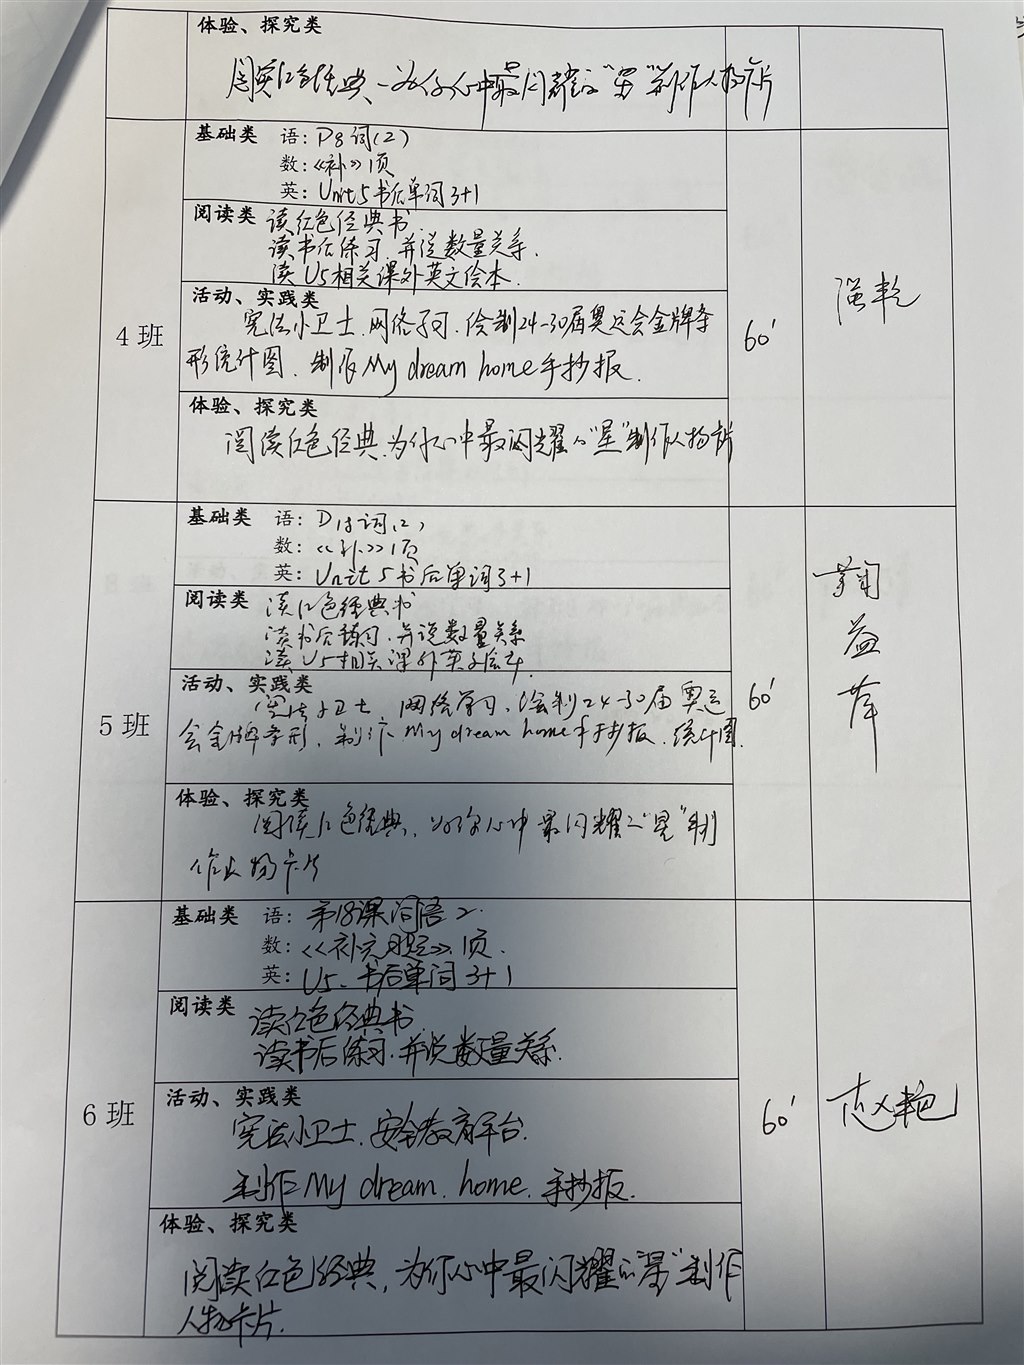 体验、探究类
阅读红色经典-为你心中最闪耀的"星"制作人物卡片
基础类 语：P8词(2)
数：《补》1页
英：Unit5书后单词3+1
阅读类 读红色经典书
读书后练习.并说数量关系.
读U5相关课外英文绘本.
活动、实践类
宪法小卫士.网络学习.绘制24-30届奥运会金牌条
形统计图.制作My dream home手抄报.
4班
60'
体验、探究类
阅读红色经典.为你心中最闪耀的"星"制作人物卡片
基础类 语：P18词(2)
数：《补》1页
英：Unit 5书后单词3+1
阅读类 读红色经典书
读书后练习.并说数量关系
读U5相关课外英文绘本.
活动、实践类
宪法小卫士.网络学习.绘制24-30届奥运
会金牌条形.制作My dream home手抄报.统计图.
5班
60'
体验、探究类
阅读红色经典,为你心中最闪耀的"星"制
作人物卡片
基础类 语：第18课词语2.
数：《补充习题》.1页.
英：U5.书后单词3+1
阅读类 读红色经典书.
读书后练习.并说数量关系.
活动、实践类
宪法小卫士.安全教育平台.
制作My dream. home. 手抄报.
6班
60'
体验、探究类
阅读红色经典,为你心中最闪耀的"星"制作
人物卡片.